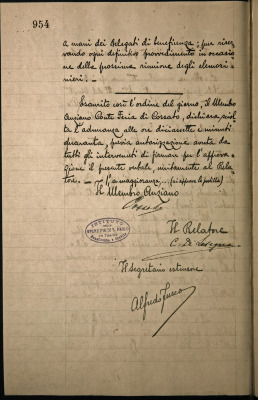 954
a mani dei Delegati di beneficenza; pur riser-
vando ogni definitivo provvedimento in occasio-
ne della prossima riunione degli elemosi-
nieri. -
Esaurito così l'ordine del giorno, il Membro
Anziano Conte Feria di Cossato, dichiara sciol-
ta l'adunanza alle ore diciasette e minuti
quaranta, previa autorizzazione avuta da
tutti gli intervenuti di firmare per l'approva-
zione il presente verbale, unitamente al Rela-
tore. - (a maggioranza...
Il Membro Anziano
Cossato
Il Relatore
ISTITUTO
Il Segretario estensore
Alfredo